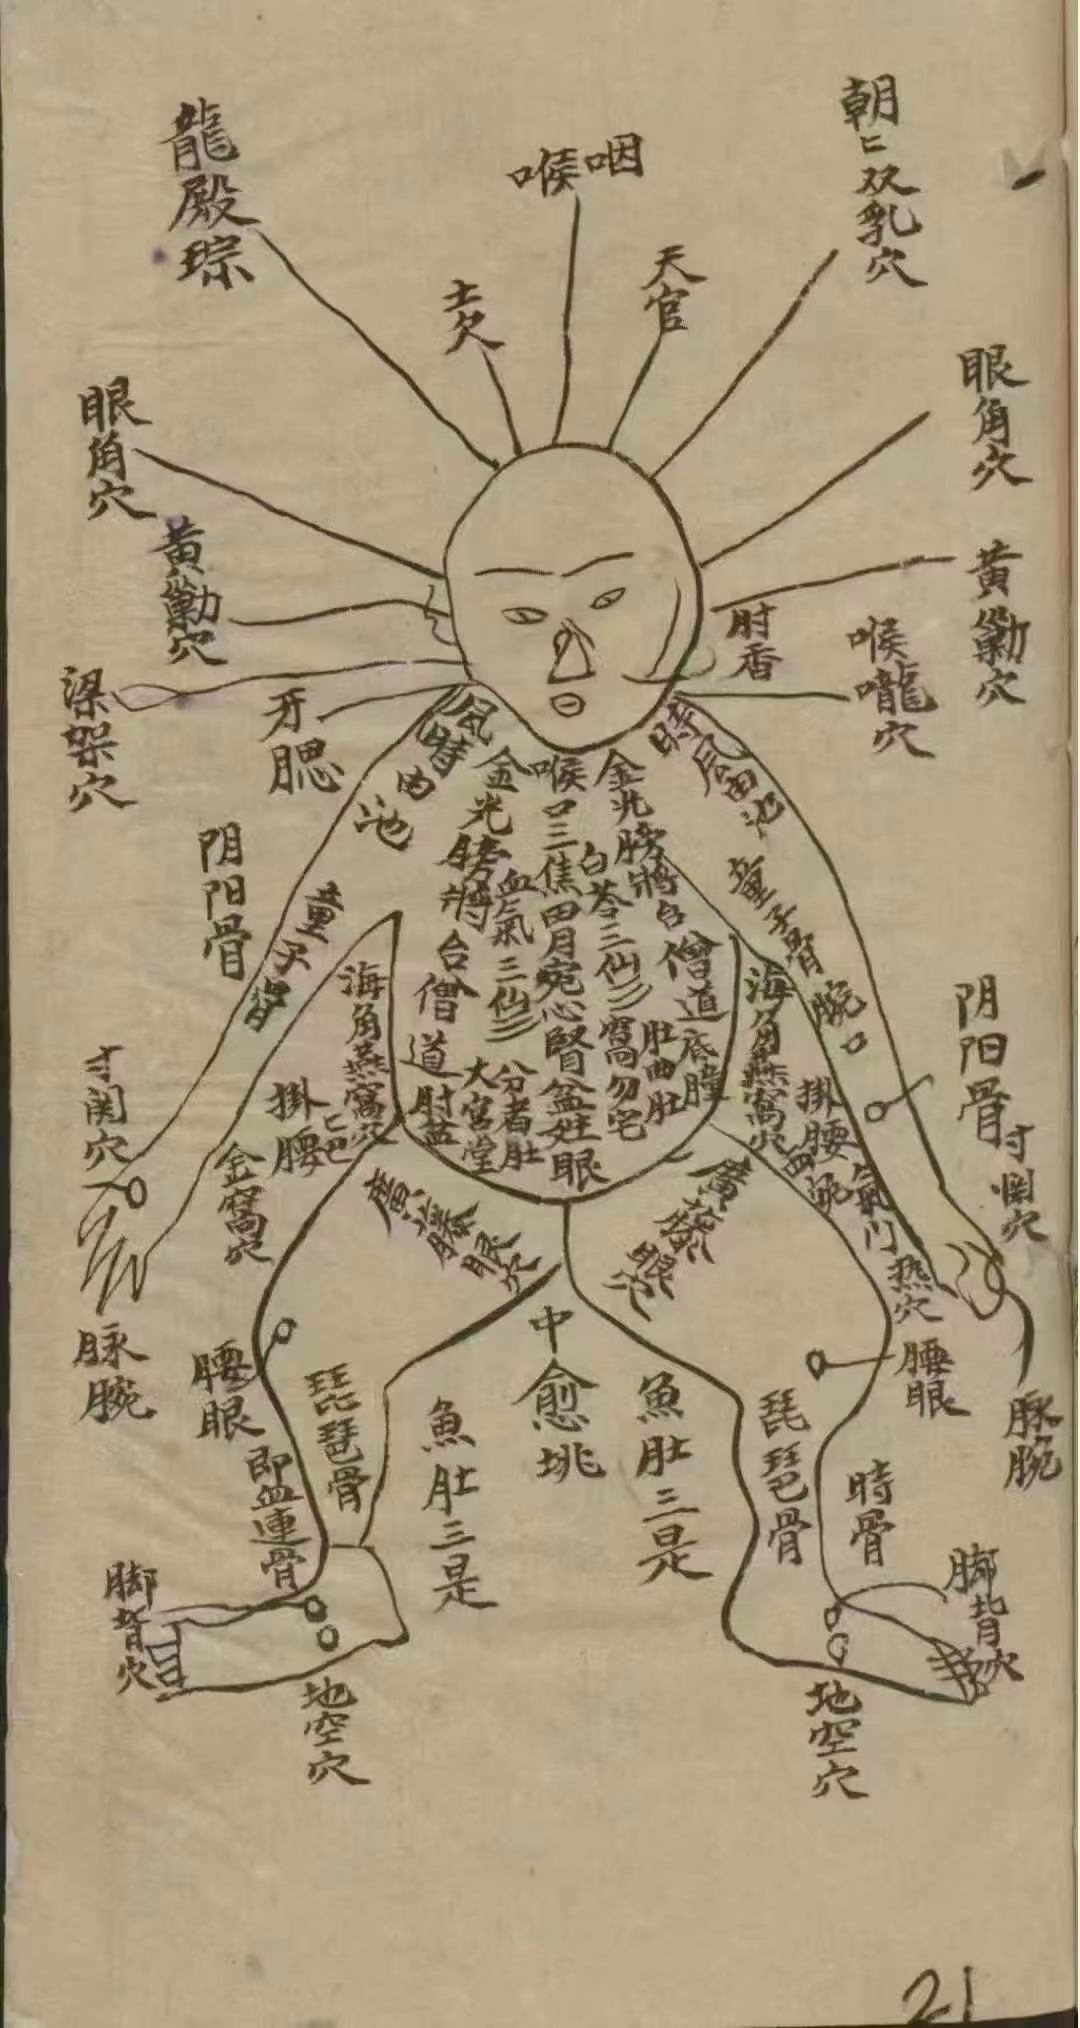 龍殿琮
喉咽
天官
朝〻双乳穴
眼角穴
眼角穴
黃勦穴
黃勦穴
肘香
喉嚨穴
梁架穴
牙腮
風時
曲池
時風曲池
金光膀將台僧道
喉口三焦田月宛心腎盆姓眼
血氣三仙
大宮堂
分者肚
肚曲肚
底瞳
僧道
阴阳骨
童子骨
童子骨
腕口
阴阳骨
寸関穴
寸関穴
海角燕窩穴
海角燕窩穴
掛腰
掛腰
金窩穴
氣门
热穴
廣藤眼穴
廣藤眼穴
脉腕
脉腕
腰眼
腰眼
中愈埉
琵琶骨
琵琶骨
魚肚三是
魚肚三是
即血連骨
時骨
脚背穴
脚背穴
地空穴
地空穴
21